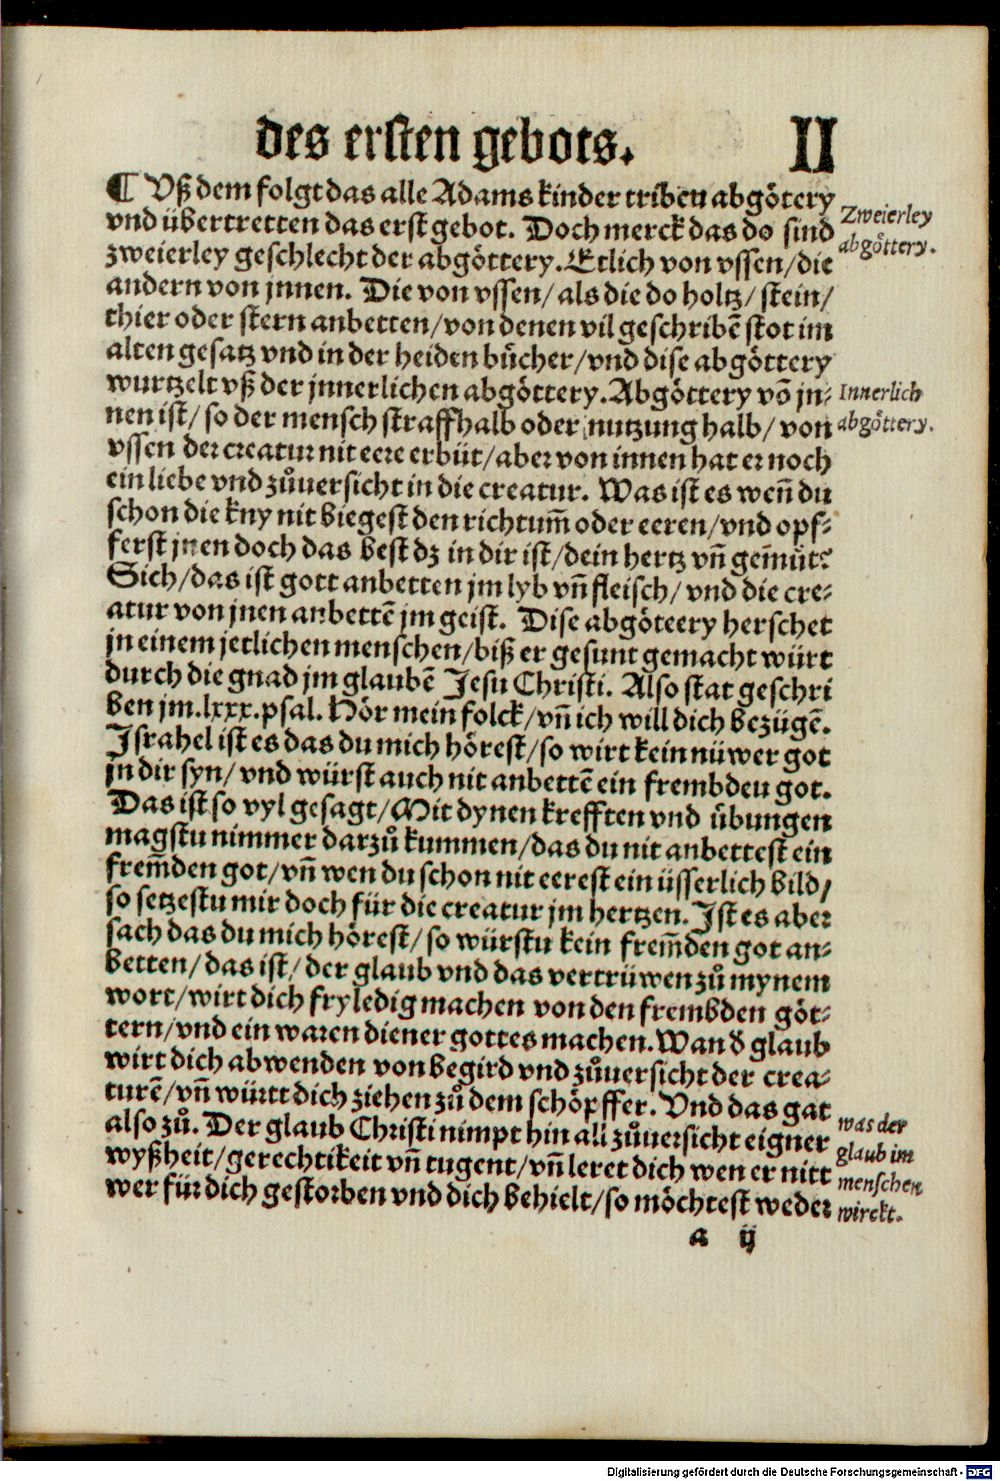 des ersten gebots. II
¶ Vß dem folgt das alle Adams kinder triben abgötery
vnd übertretten das erst gebot. Doch merck das do sind
Zweierley
abgöttery.
zweierley geschlecht der abgöttery. Etlich von vssen/die
andern von jnnen. Die von vssen/als die do holtz/stein/
thier oder stern anbetten/von denen vil geschribē stot im
alten gesatz vnd in der heiden bücher/vnd dise abgöttery
wurtzelt vß der jnnerlichen abgöttery. Abgöttery vō jn⸗
Innerlich
abgöttery.
nen ist/so der mensch straffhalb oder nutzung halb/von
vssen der creatur nit eere erbüt/aber von innen hat er noch
ein liebe vnd zůuersicht in die creatur. Was ist es wen̄ du
schon die kny nit biegest den richtum̄ oder eeren/vnd opf⸗
ferst jnen doch das best dz in dir ist/dein hertz vn̄ gem̄üt?
Sich/das ist gott anbetten jm lyb vn̄ fleisch/vnd die cre⸗
atur von jnen anbettē jm geist. Dise abgöteery herschet
jn einem jetlichen menschen/biß er gesunt gemacht würt
durch die gnad jm glaubē Jesu Christi. Also stat geschri
ben jm.lxxx.psal. Hör mein folck/vn̄ ich will dich bezügē.
Israhel ist es das du mich hörest/so wirt kein nüwer got
jn dir syn/vnd würst auch nit anbettē ein frembden got.
Das ist so vyl gesagt/Mit dynen krefften vnd übungen
magstu nimmer darzů kummen/das du nit anbettest ein
frem̄den got/vn̄ wen du schon nit eerest ein üsserlich bild/
so setzestu mir doch für die creatur jm hertzen. Ist es aber
sach das du mich hörest/so würstu kein frem̄den got an⸗
betten/das ist/der glaub vnd das vertrüwen zů mynem
wort/wirt dich fryledig machen von den frembden göt⸗
tern/vnd ein waren diener gottes machen. Wan d̕ glaub
wirt dich abwenden von begird vnd zůuersicht der crea⸗
turē/vn̄ württ dich ziehen zů dem schöpffer. Vnd das gat
also zů. Der glaub Christi nimpt hin all zůuersicht eigner
was der
glaub im
menschen
wirckt.
wyßheit/gerechtikeit vn̄ tugent/vn̄ leret dich wen er nitt
wer für dich gestorben vnd dich behielt/so möchtest weder
a ij
Digitalisierung gefördert durch die Deutsche Forschungsgemeinschaft - DFG